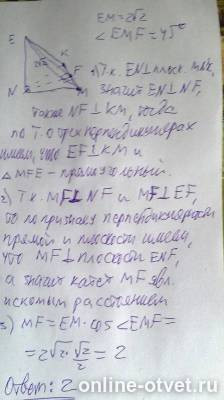 EM=2√2
∠EMF=45°
E
K
2√2
F
N
M
1) Т.к. EN⊥плоск. MNK,
значит EN⊥NF,
также NF⊥KM, тогда
по Т. о трех перпендикулярах
имеем, что EF⊥KM и
△MFE – прямоугольный.
2) Т.к. MF⊥NF и MF⊥EF,
то по признаку перпендикулярности
прямой и плоскости имеем,
что MF⊥плоскости ENF,
а значит катет MF явл.
искомым расстоянием
3) MF=EM·cos∠EMF=
=2√2·√2/2=2
Ответ: 2
online-otvet.ru